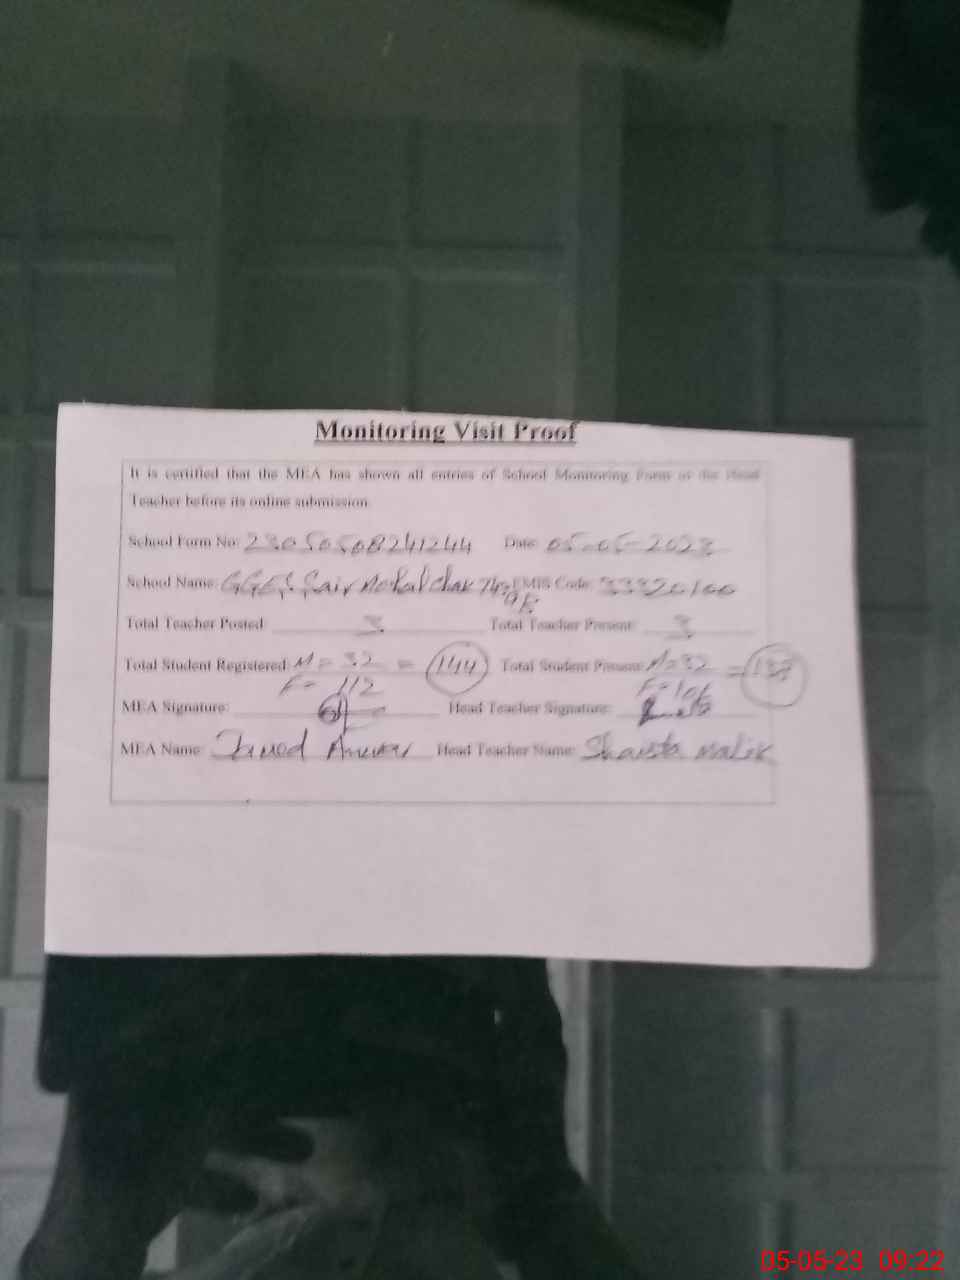 Monitoring Visit Proof
It is certified that the MEA has shown all entries of School Monitoring Form to the Head
Teacher before its online submission.
School Form No: 23050508241244 Date: 05-05-2023
School Name: GGES, Chak EMIS Code: 33320100
Total Teacher Posted: 3 Total Teacher Present: 3
Total Student Registered: M = 32 = 144 Total Student Present: M = 32 = 138
F = 112 F = 106
MEA Signature: Head Teacher Signature:
MEA Name: Anwar Head Teacher Name: Shaista Malik
05-05-23 09:22